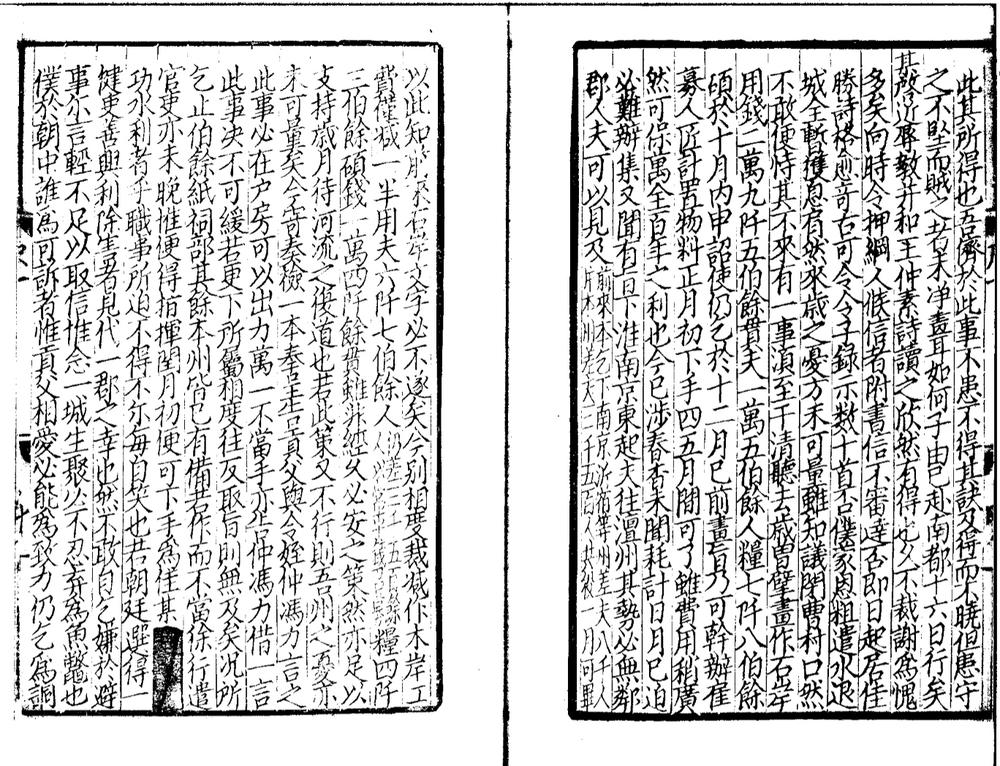 此其所得也吾儕於此事不患不得其訣及得而不曉但患守
之不堅而賊之者未淨盡耳如何子由已赴南都十六日行矣
其啓近辱教并和王仲素詩讀之欣然有得也久不裁謝為愧
多矣向時令押綱人候信者附書信不審達否即日起居佳
勝詩格愈奇古可令令子錄示數十首否僕家恩粗遣水退
城全暫獲息肩然來歲之憂方未可量雖知議閉曹村口然
不敢便恃其不來有一事湏至干清聽去歲曾擘畫作石岸
用錢二萬九阡五伯餘貫夫一萬五伯餘人糧七阡八伯餘
碩於十月內申詔使仍乞於十二月已前畫㫖乃可幹辦雇
募人匠計置物料正月初下手四五月間可了雖費用稍廣
然可保萬全百年之利也今已涉春杳未聞耗計日月已迫
必難辦集又聞有㫖下淮南京東起夫往澶州其勢必無鄰
郡人夫可以見及
以此知前來石岸文字必不遂矣今別相度裁減作木岸工
費權減一半用夫六阡七伯餘人糧四阡
三伯餘碩錢一萬四阡餘貫雖非經久必安之策然亦足以
支持歲月待河流之復道也若此策又不行則吾州之憂亦
未可量矣今寄奏檢一本奉呈告貢父與令姪仲馮力言之
此事必在戶房可以出力萬一不當手亦告仲馮力借一言
此事決不可緩若更下所屬相度往反取㫖則無及矣況所
乞止伯餘紙祠部其餘本州皆已有備若作而不當徐行遣
官吏亦未晚惟便得指揮閏月初便可下手為佳某
功水利者乎職事所迫不得不尔每自笑也若朝廷選得一
健吏善興利除害者見代一郡之幸也然不敢自乞嫌於避
事尔言輕不足以取信惟念一城生聚必不忍棄為魚鼈也
僕於朝中誰為可訴者惟貢父相愛必能為致力仍乞為調